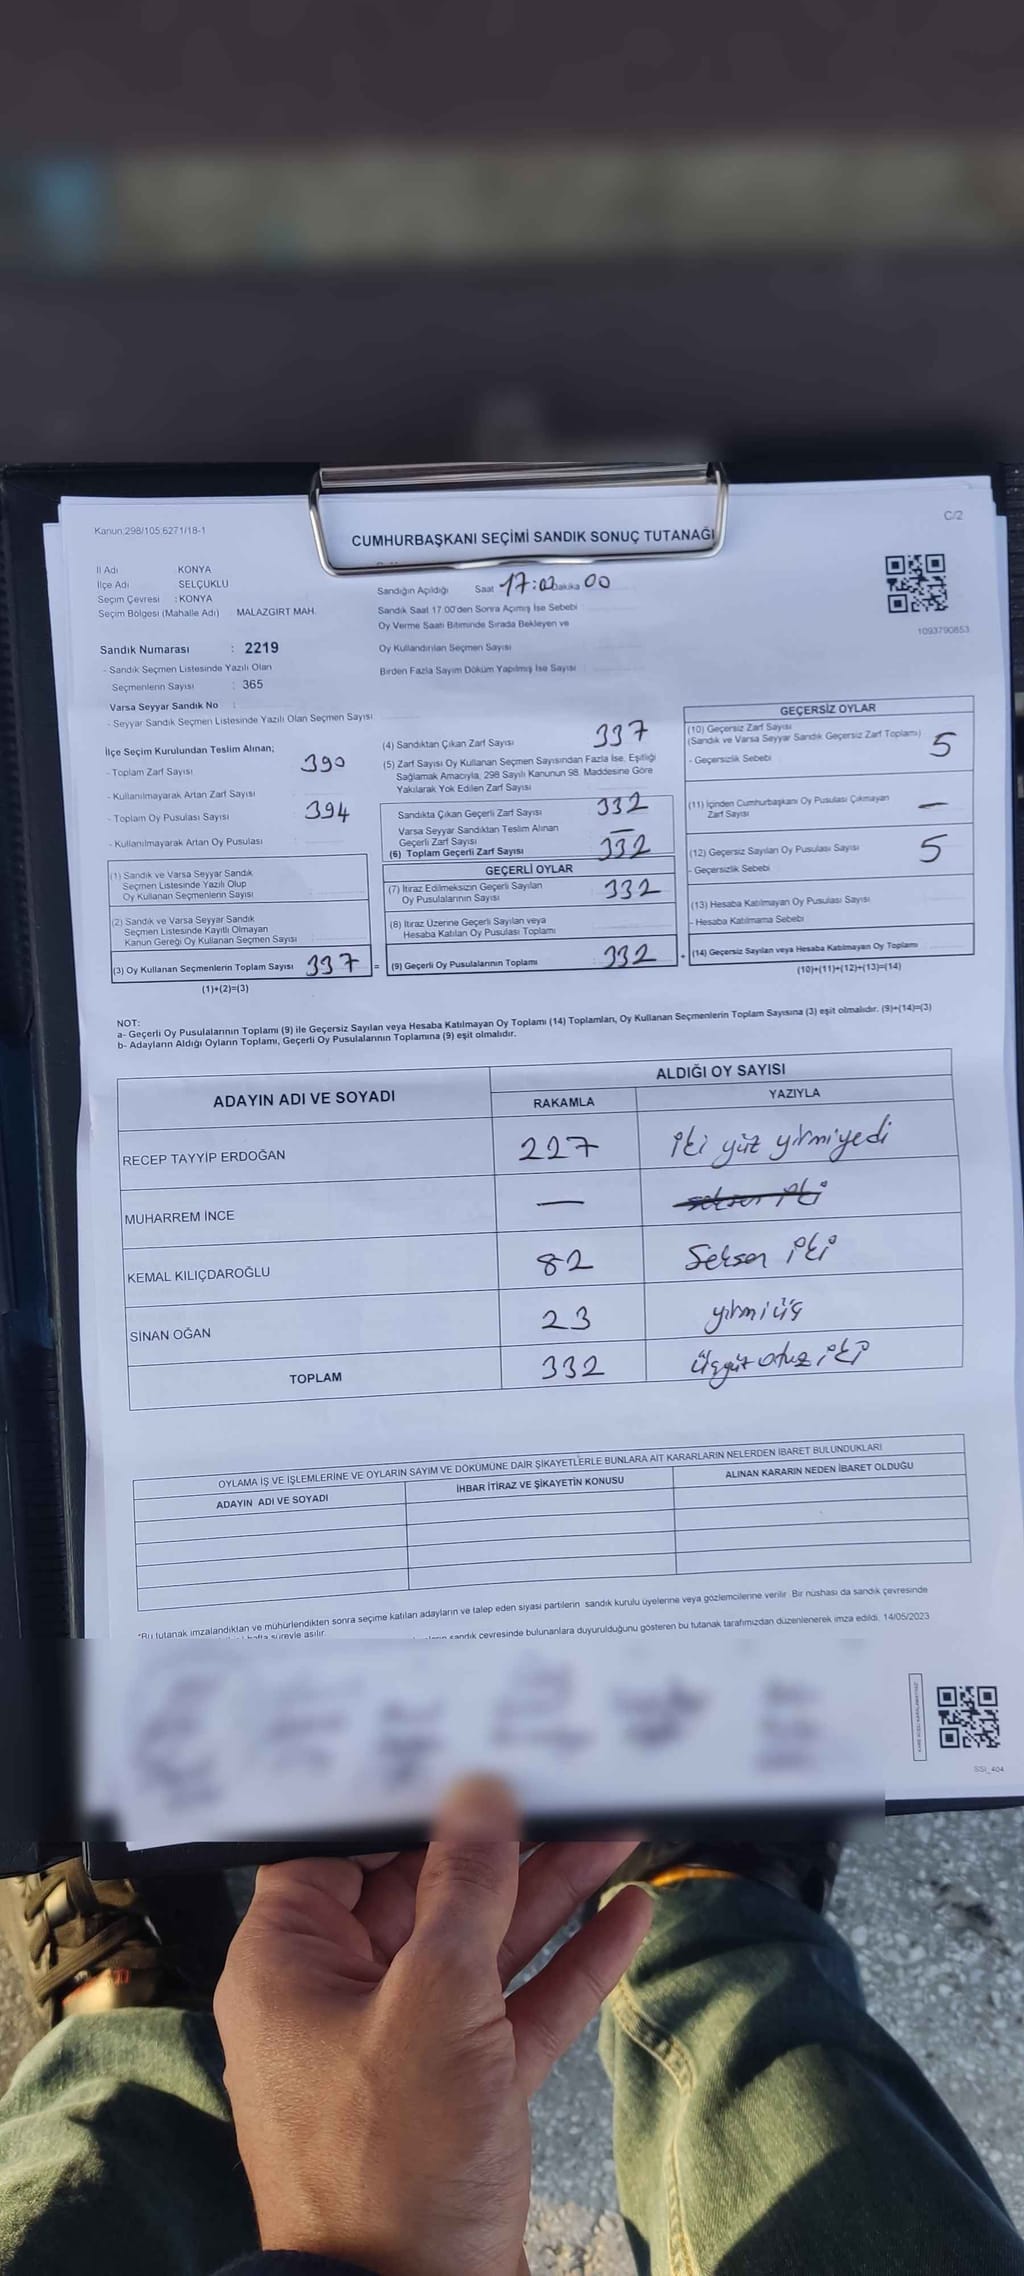 Kanun:298/105 6271/18-1
C/2
CUMHURBAŞKANI SEÇİMİ SANDIK SONUÇ TUTANAĞI
İl Adı : KONYA
İlçe Adı SELÇUKLU
Seçim Çevresi : KONYA
Seçim Bölgesi (Mahalle Adı) : MALAZGIRT MAH.
Sandık Numarası : 2219
- Sandık Seçmen Listesinde Yazılı Olan
Seçmenlerin Sayısı : 365
Varsa Seyyar Sandık No :
- Seyyar Sandık Seçmen Listesinde Yazılı Olan Seçmen Sayısı
Sandığın Açıldığı Saat 17:02 Dakika 00
Sandık Saat 17.00'den Sonra Açımış İse Sebebi
Oy Verme Saati Bitiminde Sırada Bekleyen ve
Oy Kullandırılan Seçmen Sayısı
Birden Fazla Sayım Döküm Yapılmış İse Sayısı
1093790853
İlçe Seçim Kurulundan Teslim Alınan;
- Toplam Zarf Sayısı 390
- Kullanılmayarak Artan Zarf Sayısı
- Toplam Oy Pusulası Sayısı 394
- Kullanılmayarak Artan Oy Pusulası
(1) Sandık ve Varsa Seyyar Sandık
Seçmen Listesinde Yazılı Olup
Oy Kullanan Seçmenlerin Sayısı
(2) Sandık ve Varsa Seyyar Sandık
Seçmen Listesinde Kayıtlı Olmayan
Kanun Gereği Oy Kullanan Seçmen Sayısı
(3) Oy Kullanan Seçmenlerin Toplam Sayısı 337 =
(1)+(2)=(3)
(4) Sandıktan Çıkan Zarf Sayısı 337
(5) Zarf Sayısı Oy Kullanan Seçmen Sayısından Fazla İse, Eşitliği
Sağlamak Amacıyla, 298 Sayılı Kanunun 98. Maddesine Göre
Yakılarak Yok Edilen Zarf Sayısı
Sandıkta Çıkan Geçerli Zarf Sayısı 332
Varsa Seyyar Sandıktan Teslim Alınan
Geçerli Zarf Sayısı —
(6) Toplam Geçerli Zarf Sayısı 332
GEÇERLİ OYLAR
(7) İtiraz Edilmeksizin Geçerli Sayılan
Oy Pusulalarının Sayısı 332
(8) İtiraz Üzerine Geçerli Sayılan veya
Hesaba Katılan Oy Pusulası Toplamı
(9) Geçerli Oy Pusulalarının Toplamı 332 +
GEÇERSİZ OYLAR
(10) Geçersiz Zarf Sayısı
(Sandık ve Varsa Seyyar Sandık Geçersiz Zarf Toplamı) 5
- Geçersizlik Sebebi
(11) İçinden Cumhurbaşkanı Oy Pusulası Çıkmayan
Zarf Sayısı —
(12) Geçersiz Sayılan Oy Pusulası Sayısı 5
- Geçersizlik Sebebi
(13) Hesaba Katılmayan Oy Pusulası Sayısı
- Hesaba Katılmama Sebebi
(14) Geçersiz Sayılan veya Hesaba Katılmayan Oy Toplamı
(10)+(11)+(12)+(13)=(14)
NOT:
a- Geçerli Oy Pusulalarının Toplamı (9) ile Geçersiz Sayılan veya Hesaba Katılmayan Oy Toplamı (14) Toplamları, Oy Kullanan Seçmenlerin Toplam Sayısına (3) eşit olmalıdır. (9)+(14)=(3)
b- Adayların Aldığı Oyların Toplamı, Geçerli Oy Pusulalarının Toplamına (9) eşit olmalıdır.
ADAYIN ADI VE SOYADI ALDIĞI OY SAYISI
RAKAMLA YAZIYLA
RECEP TAYYİP ERDOĞAN 227 iki yüz yirmiyedi
MUHARREM İNCE — seksen iki
KEMAL KILIÇDAROĞLU 82 Seksen iki
SİNAN OĞAN 23 yirmi üç
TOPLAM 332 üçyüz otuz iki
OYLAMA İŞ VE İŞLEMLERİNE VE OYLARIN SAYIM VE DÖKÜMÜNE DAİR ŞİKAYETLERLE BUNLARA AİT KARARLARIN NELERDEN İBARET BULUNDUKLARI
ADAYIN ADI VE SOYADI İHBAR İTİRAZ VE ŞİKAYETİN KONUSU ALINAN KARARIN NEDEN İBARET OLDUĞU
*Bu tutanak imzalandıktan ve mühürlendikten sonra seçime katılan adayların ve talep eden siyasi partilerin sandık kurulu üyelerine veya gözlemcilerine verilir. Bir nüshası da sandık çevresinde
hafta süreyle asılır.
sandık çevresinde bulunanlara duyurulduğunu gösteren bu tutanak tarafımızdan düzenlenerek imza edildi. 14/05/2023
SSI_404